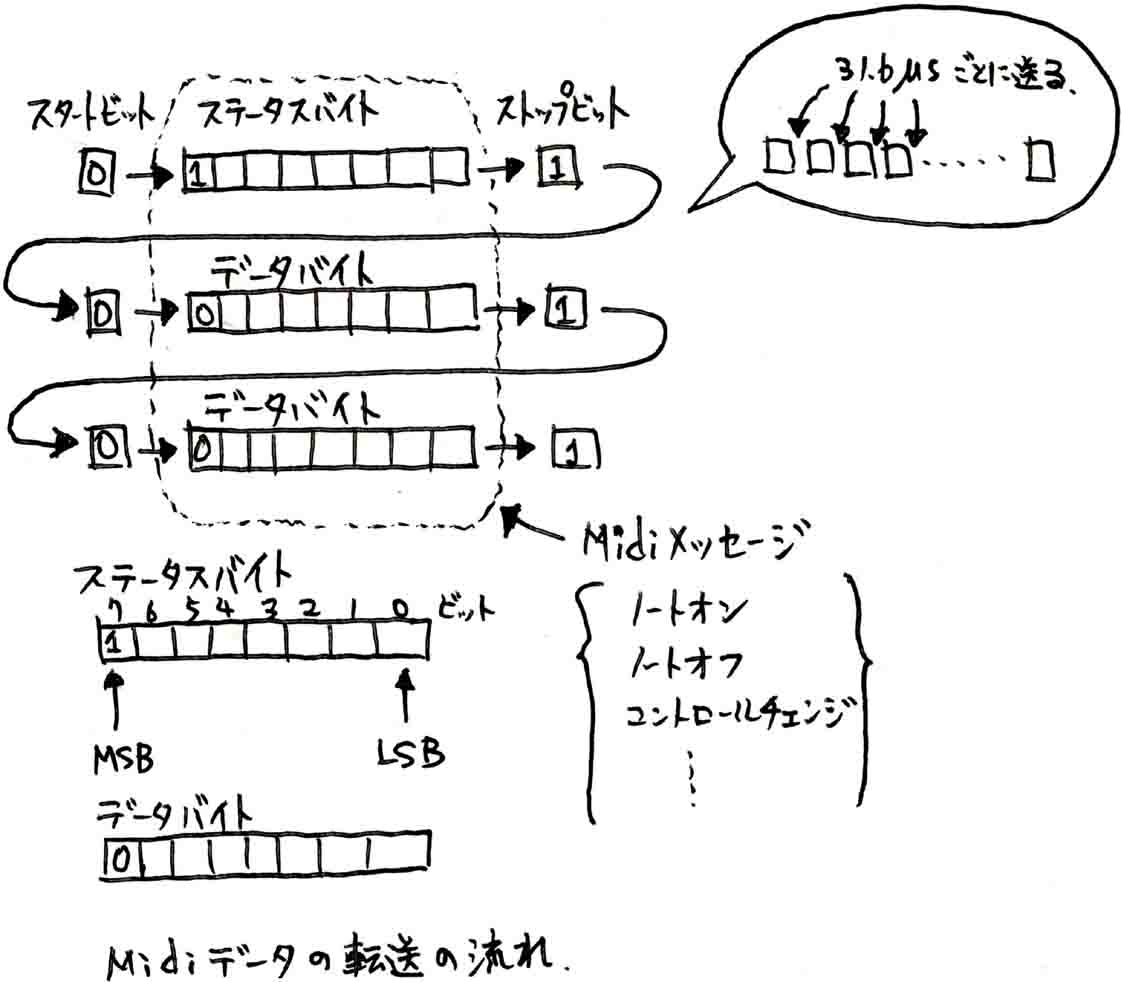 31.6μsごとに送る.
スタートビット ステータスバイト ストップビット
0 1 1
データバイト
0 0 1
データバイト
0 0 1
Midiメッセージ
ノートオン
ノートオフ
コントロールチェンジ
ステータスバイト
7 6 5 4 3 2 1 0 ビット
1
MSB LSB
データバイト
0
Midiデータの転送の流れ.